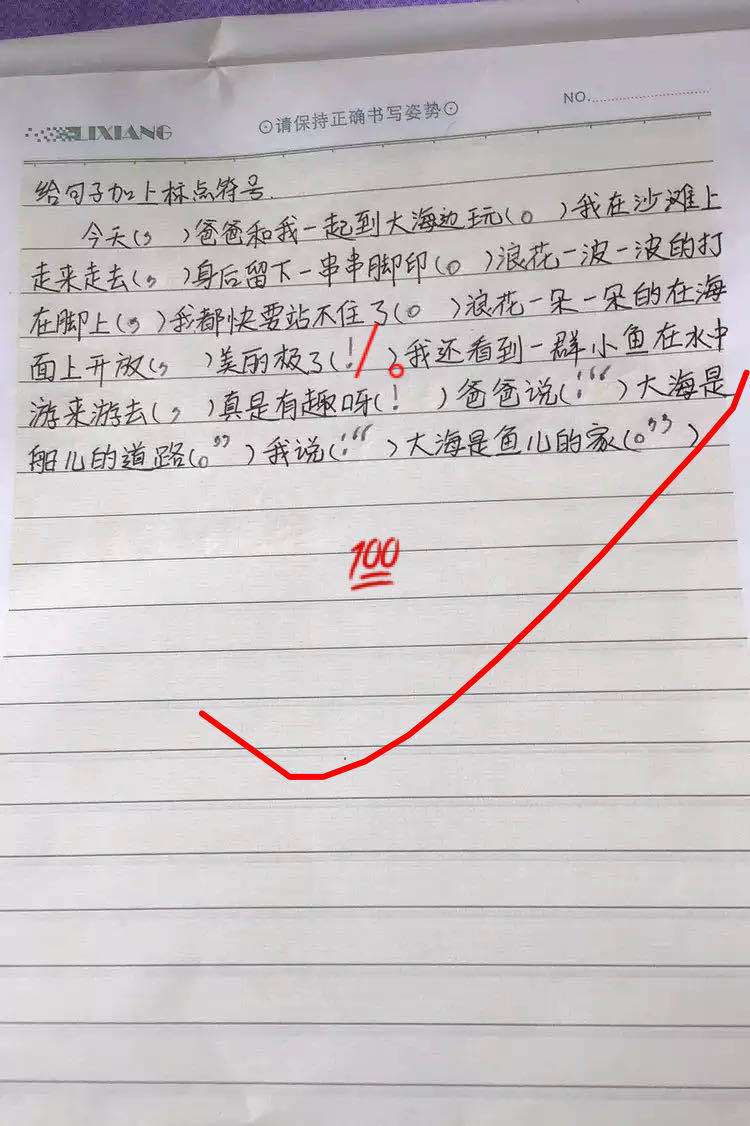 LIXIANG
⊙请保持正确书写姿势⊙
NO.
给句子加上标点符号.
今天(, )爸爸和我一起到大海边玩(。 )我在沙滩上
走来走去(, )身后留下一串串脚印(。 )浪花一波一波的打
在脚上(, )我都快要站不住了(。 )浪花一朵一朵的在海
面上开放(, )美丽极了(! )。我还看到一群小鱼在水中
游来游去(, )真是有趣呀(! )爸爸说(:“ )大海是
船儿的道路(。” )我说(:“ )大海是鱼儿的家(。” )
100